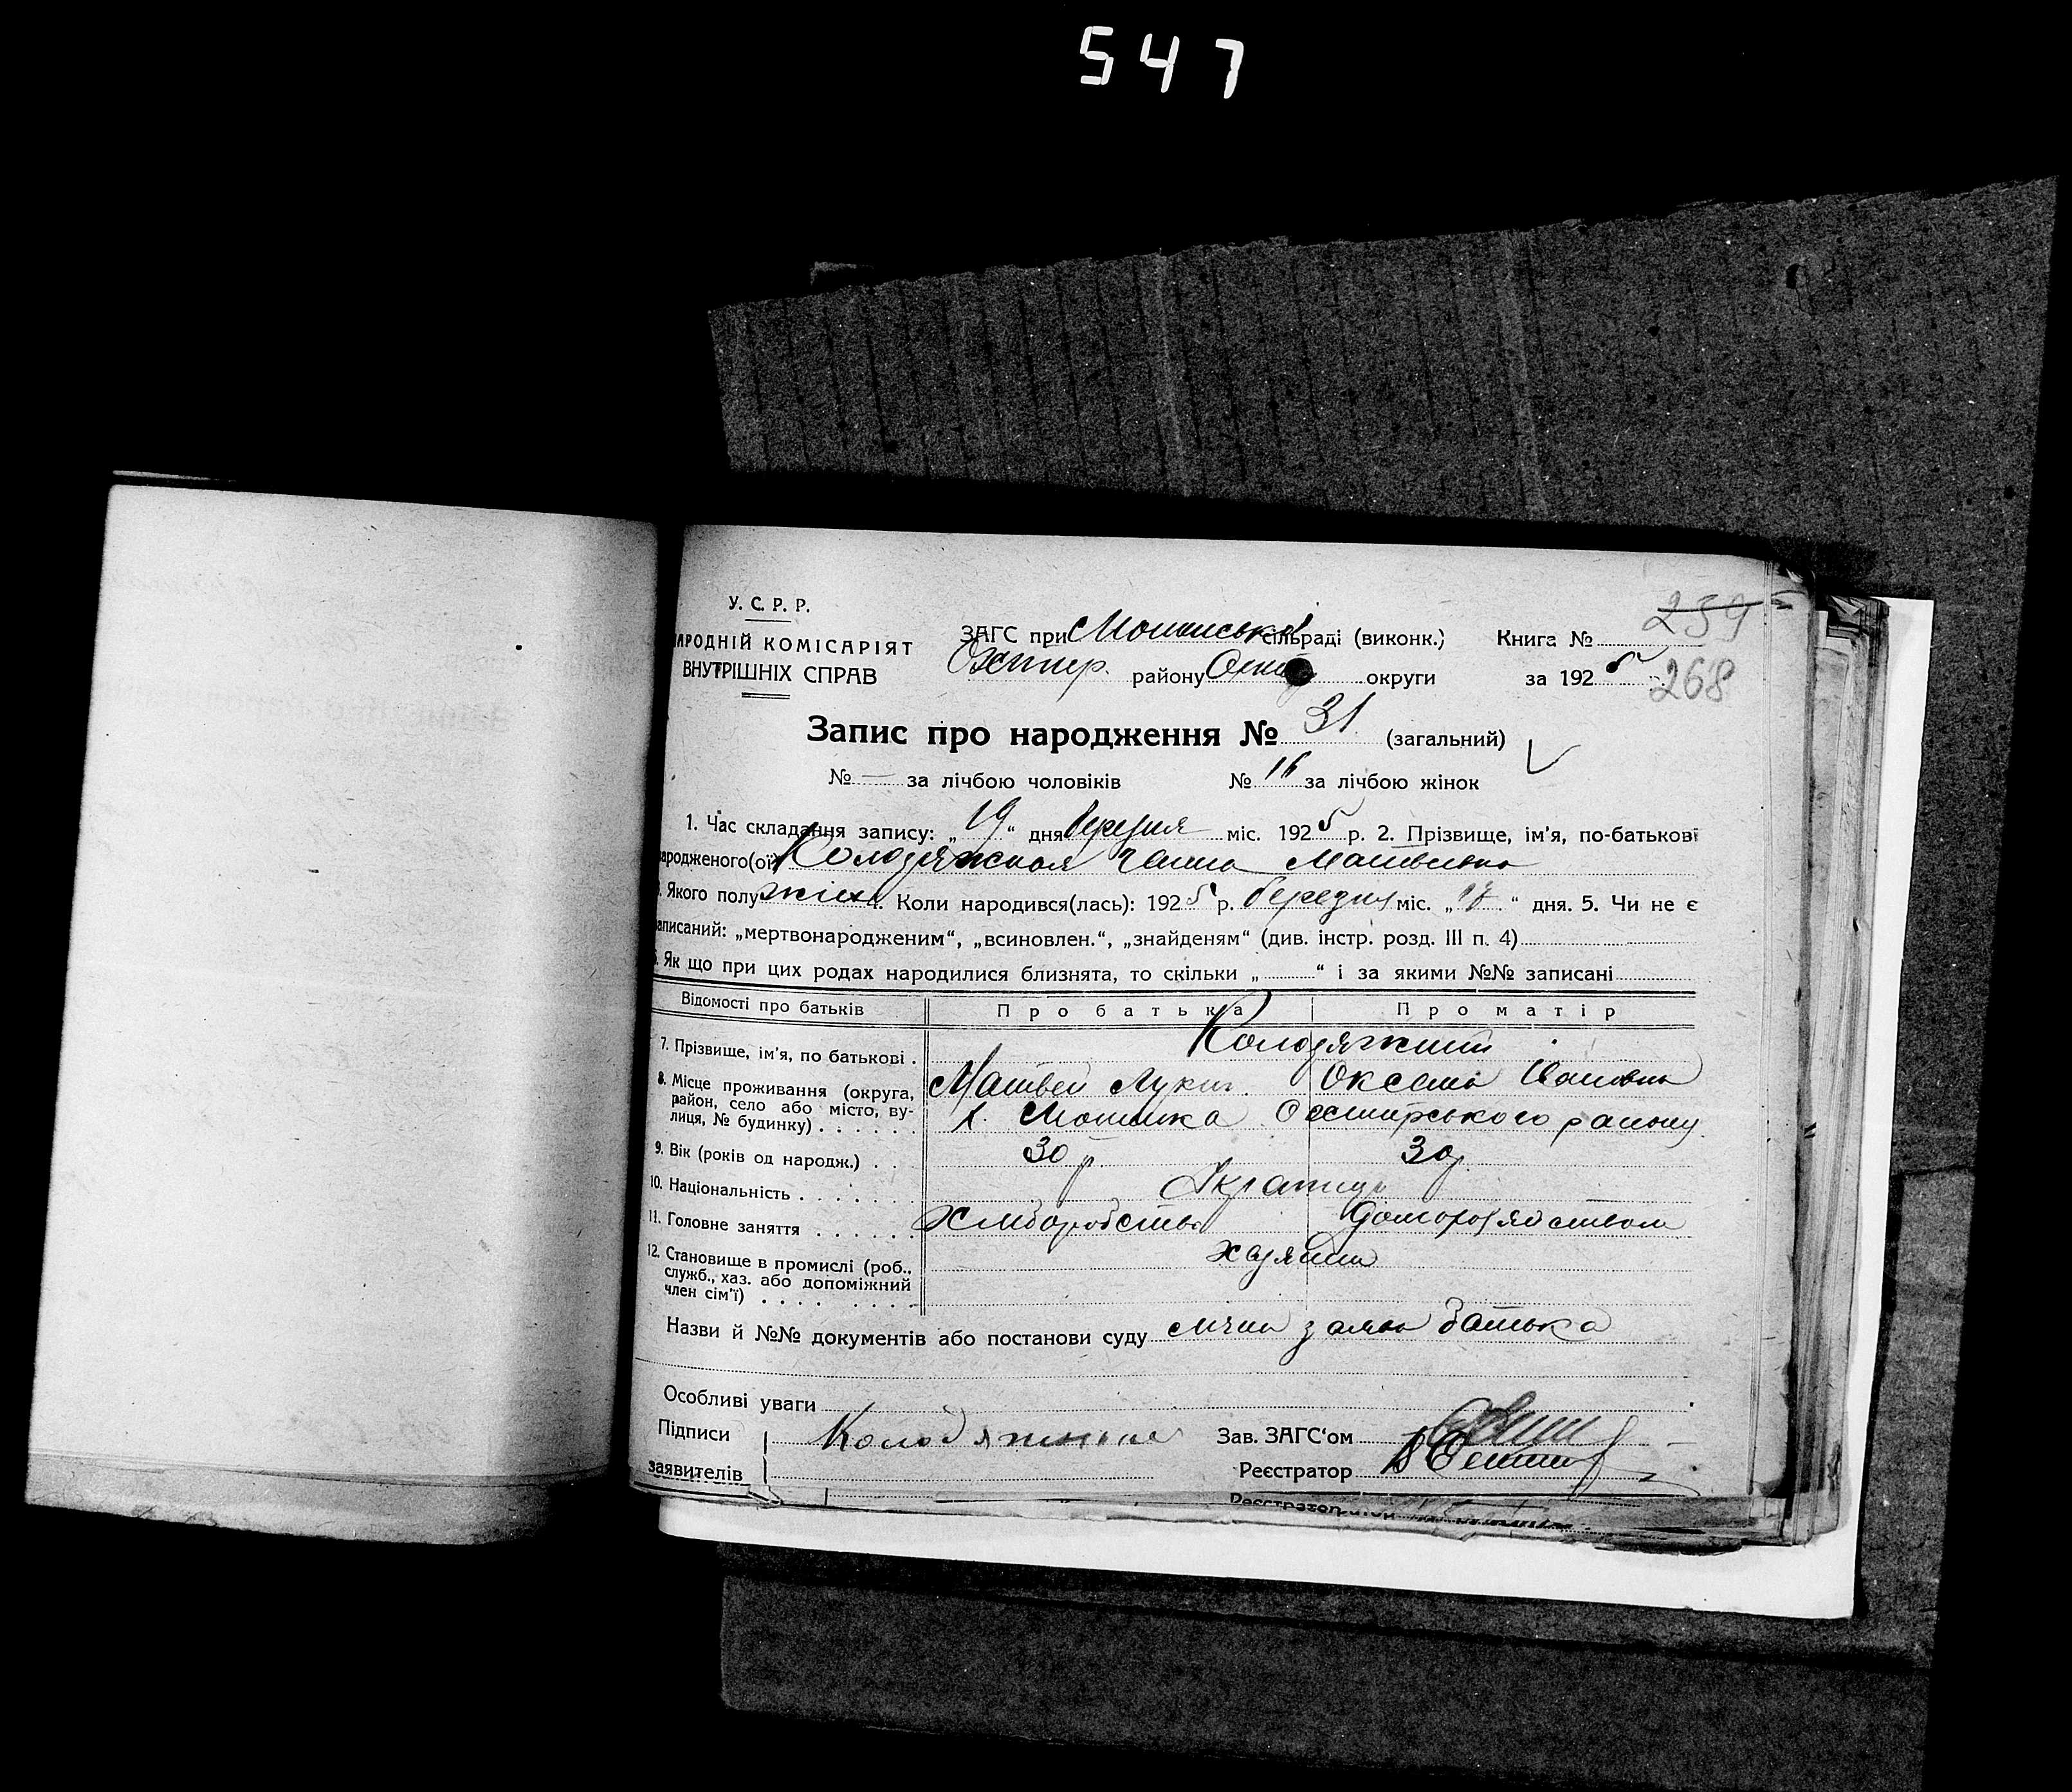 547
У. С. Р. Р.
АРОДНІЙ КОМІСАРІЯТ
ВНУТРІШНІХ СПРАВ
ЗАГС при сільраді (виконк.)
Охтир. району округи
Книга №
за 1925
259
268
Запис про народження № 31 (загальний)
№ — за лічбою чоловіків № 16 за лічбою жінок
1. Час складання запису: „19“ дня березня міс. 1925 р. 2. Прізвище, ім'я, по-батькові
ародженого(ої) Колодяжная Ганна Матвеивна
. Якого полу жін 4. Коли народився(лась): 1925 р. березня міс. „ “ дня. 5. Чи не є
аписаний: „мертвонародженим“, „всиновлен.“, „знайденям“ (див. інстр. розд. III п. 4)
. Як що при цих родах народилися близнята, то скільки „ “ і за якими №№ записані
Відомості про батьків Про батька Про матір
7. Прізвище, ім'я, по батькові . Колодяжний
Матвей Лукич. Оксана Ивановна
8. Місце проживання (округа, район, село або місто, вулиця, № будинку) х. Охтирського району
9. Вік (років од народж.) . . 30 р. 30 р
10. Національність Украинци
11. Головне заняття Хліборобство
12. Становище в промислі (роб., служб., хаз. або допоміжний член сім'ї) хазяин
Назви й №№ документів або постанови суду заява батька
Особливі уваги
Підписи Колодяжный Зав. ЗАГС'ом
заявителів Реєстратор
Реєстратор